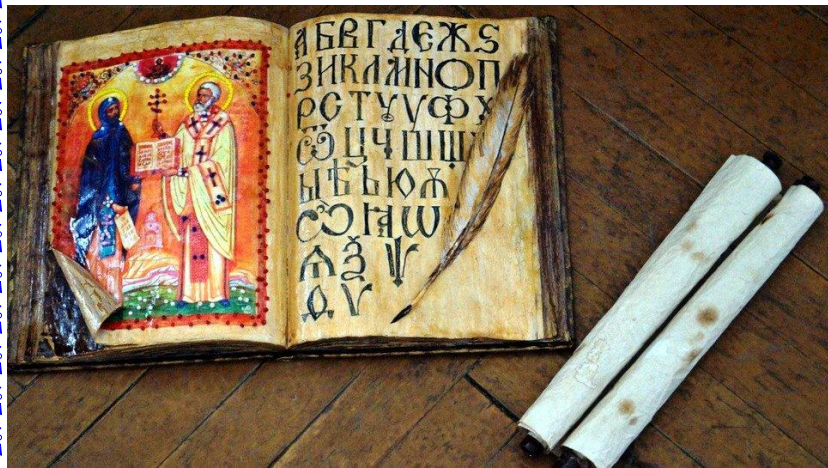 АБВГДЕЖЅ
ЗИКЛМНОП
РСТѸУФХ
ѼЦЧШЩ
ЫѢЬЮѪ
ѼꙖѠ
ѦѮѰ
ѲѴ